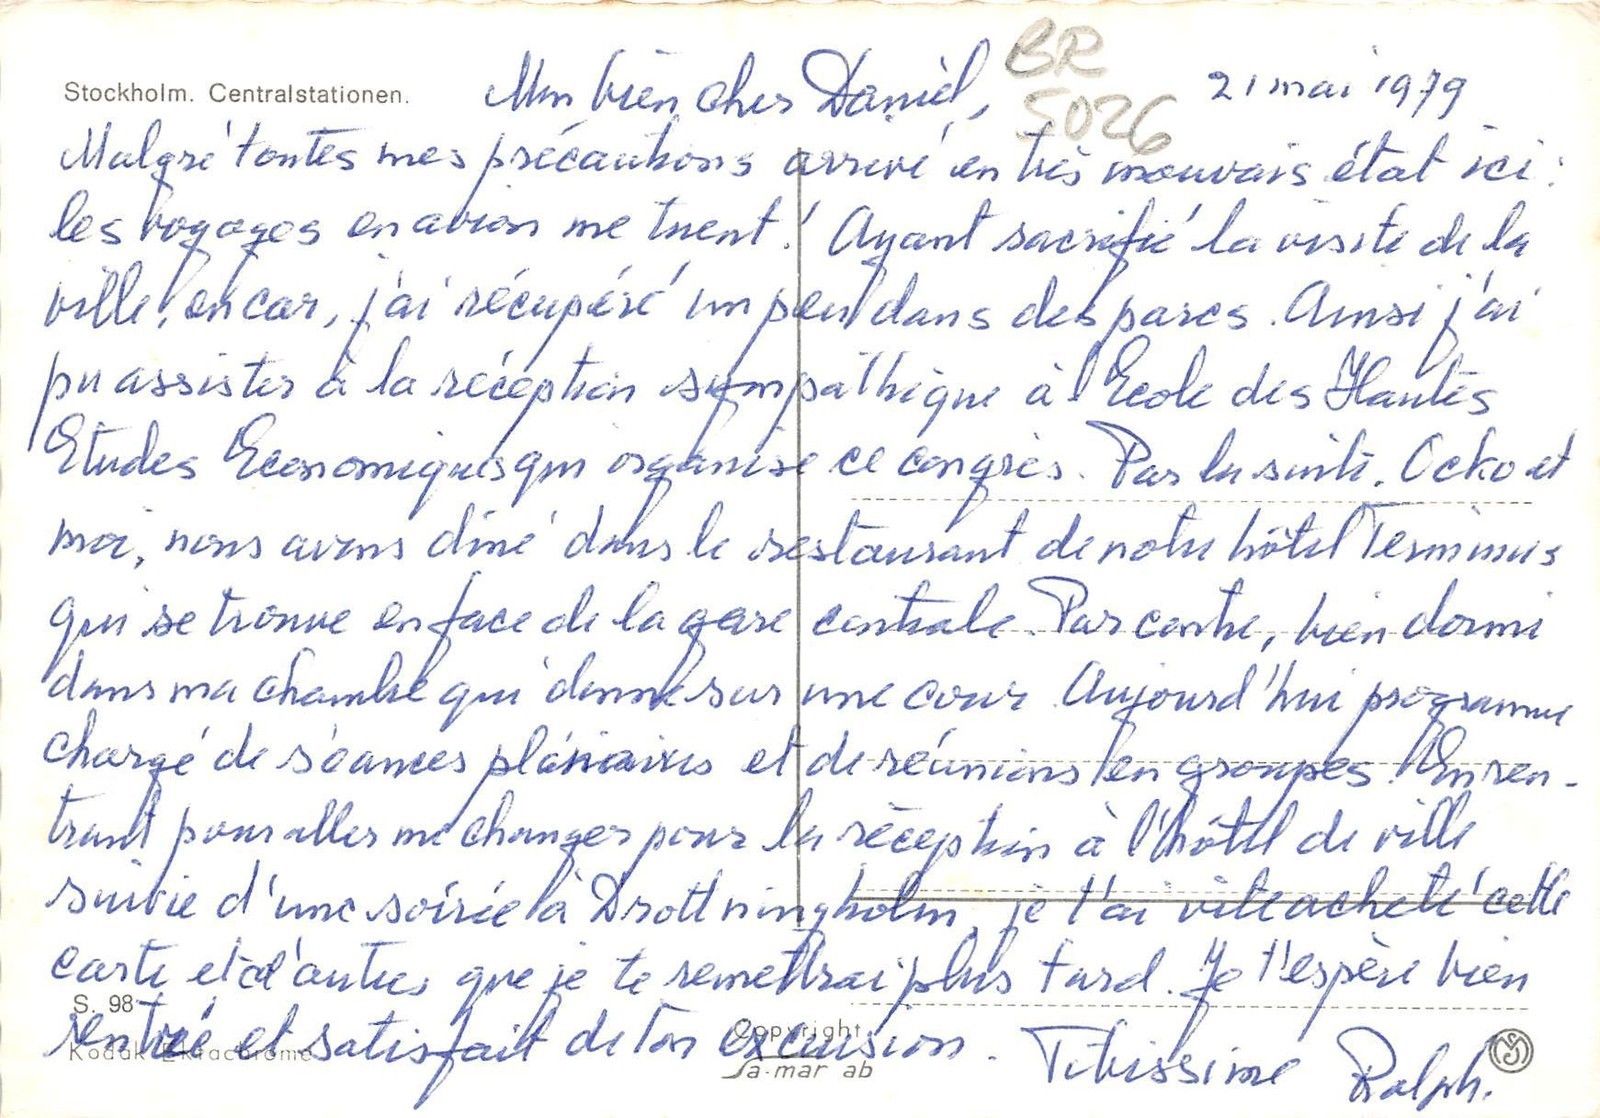 Stockholm. Centralstationen.
BR
5026
21 mai 1979
Mon bien cher Daniel,
Malgré toutes mes précautions arrivé en très mauvais état ici :
les voyages en avion me tuent ! Ayant sacrifié la visite de la
ville, en car, j'ai récupéré un peu dans des parcs. Ainsi j'ai
pu assister à la réception sympathique à l'Ecole des Hautes
Etudes Economiques qui organise ce congrès. Par la suite, Ocko et
moi, nous avons dîné dans le restaurant de notre hôtel Terminus
qui se trouve en face de la gare centrale. Par contre, bien dormi
dans ma chambre qui donne sur une cour. Aujourd'hui programme
chargé de séances plénaires et de réunions en groupes. En ren-
trant pour aller me changer pour la réception à l'hôtel de ville
suivie d'une soirée à Drottningholm, je t'ai vite acheté cette
carte et d'autres que je te remettrai plus tard. Je t'espère bien
rentré et satisfait de ton excursion. Tibissime Ralph.
S. 98
Kodak Ektachrome
Copyright
Sa-mar ab